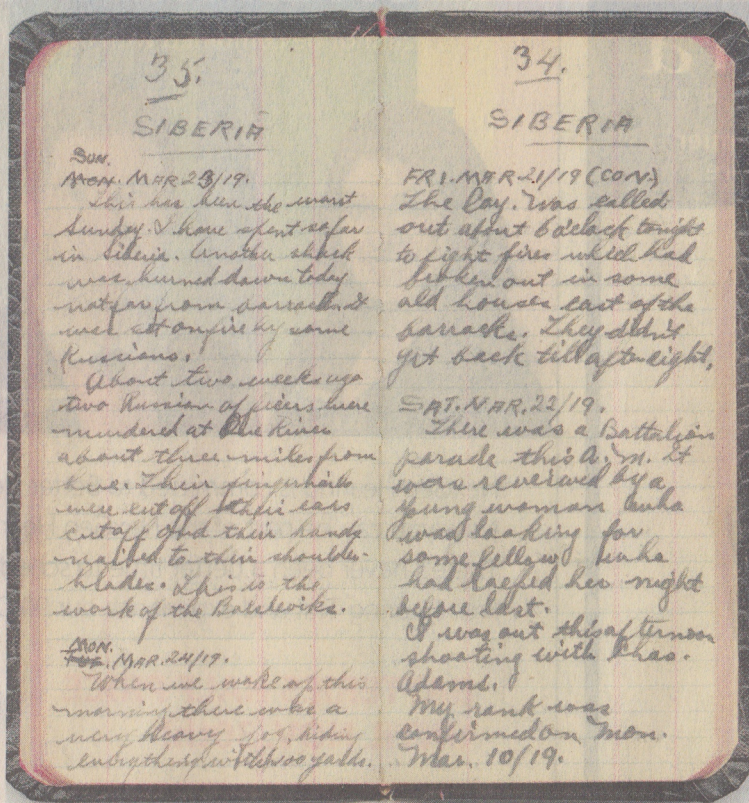 35.
SIBERIA
SUN.
MON. MAR 23/19.
This has been the worst
Sunday I have spent so far
in Siberia. Another shack
was burned down today
not far from barracks. It
was set on fire by some
Russians.
About two weeks ago
two Russian officers were
murdered at One River
about three miles from
here. Their fingernails
were cut off their ears
cut off and their hands
nailed to their shoulder-
blades. This is the
work of the Bolsheviks.
MON.
TUE. MAR. 24/19.
When we woke up this
morning there was a
very heavy fog, hiding
everything within 100 yards.
34.
SIBERIA
FRI. MAR 21/19 (CON.)
The Coy. was called
out about 6 o'clock tonight
to fight fires which had
broken out in some
old houses east of the
barracks. They didn't
get back till after eight.
SAT. MAR. 22/19.
There was a Battalion
parade this A.M. It
was reviewed by a
young woman who
was looking for
some fellow who
had raped her night
before last.
I was out this afternoon
shooting with Chas.
Adams.
My rank was
confirmed on Mon.
Mar. 10/19.